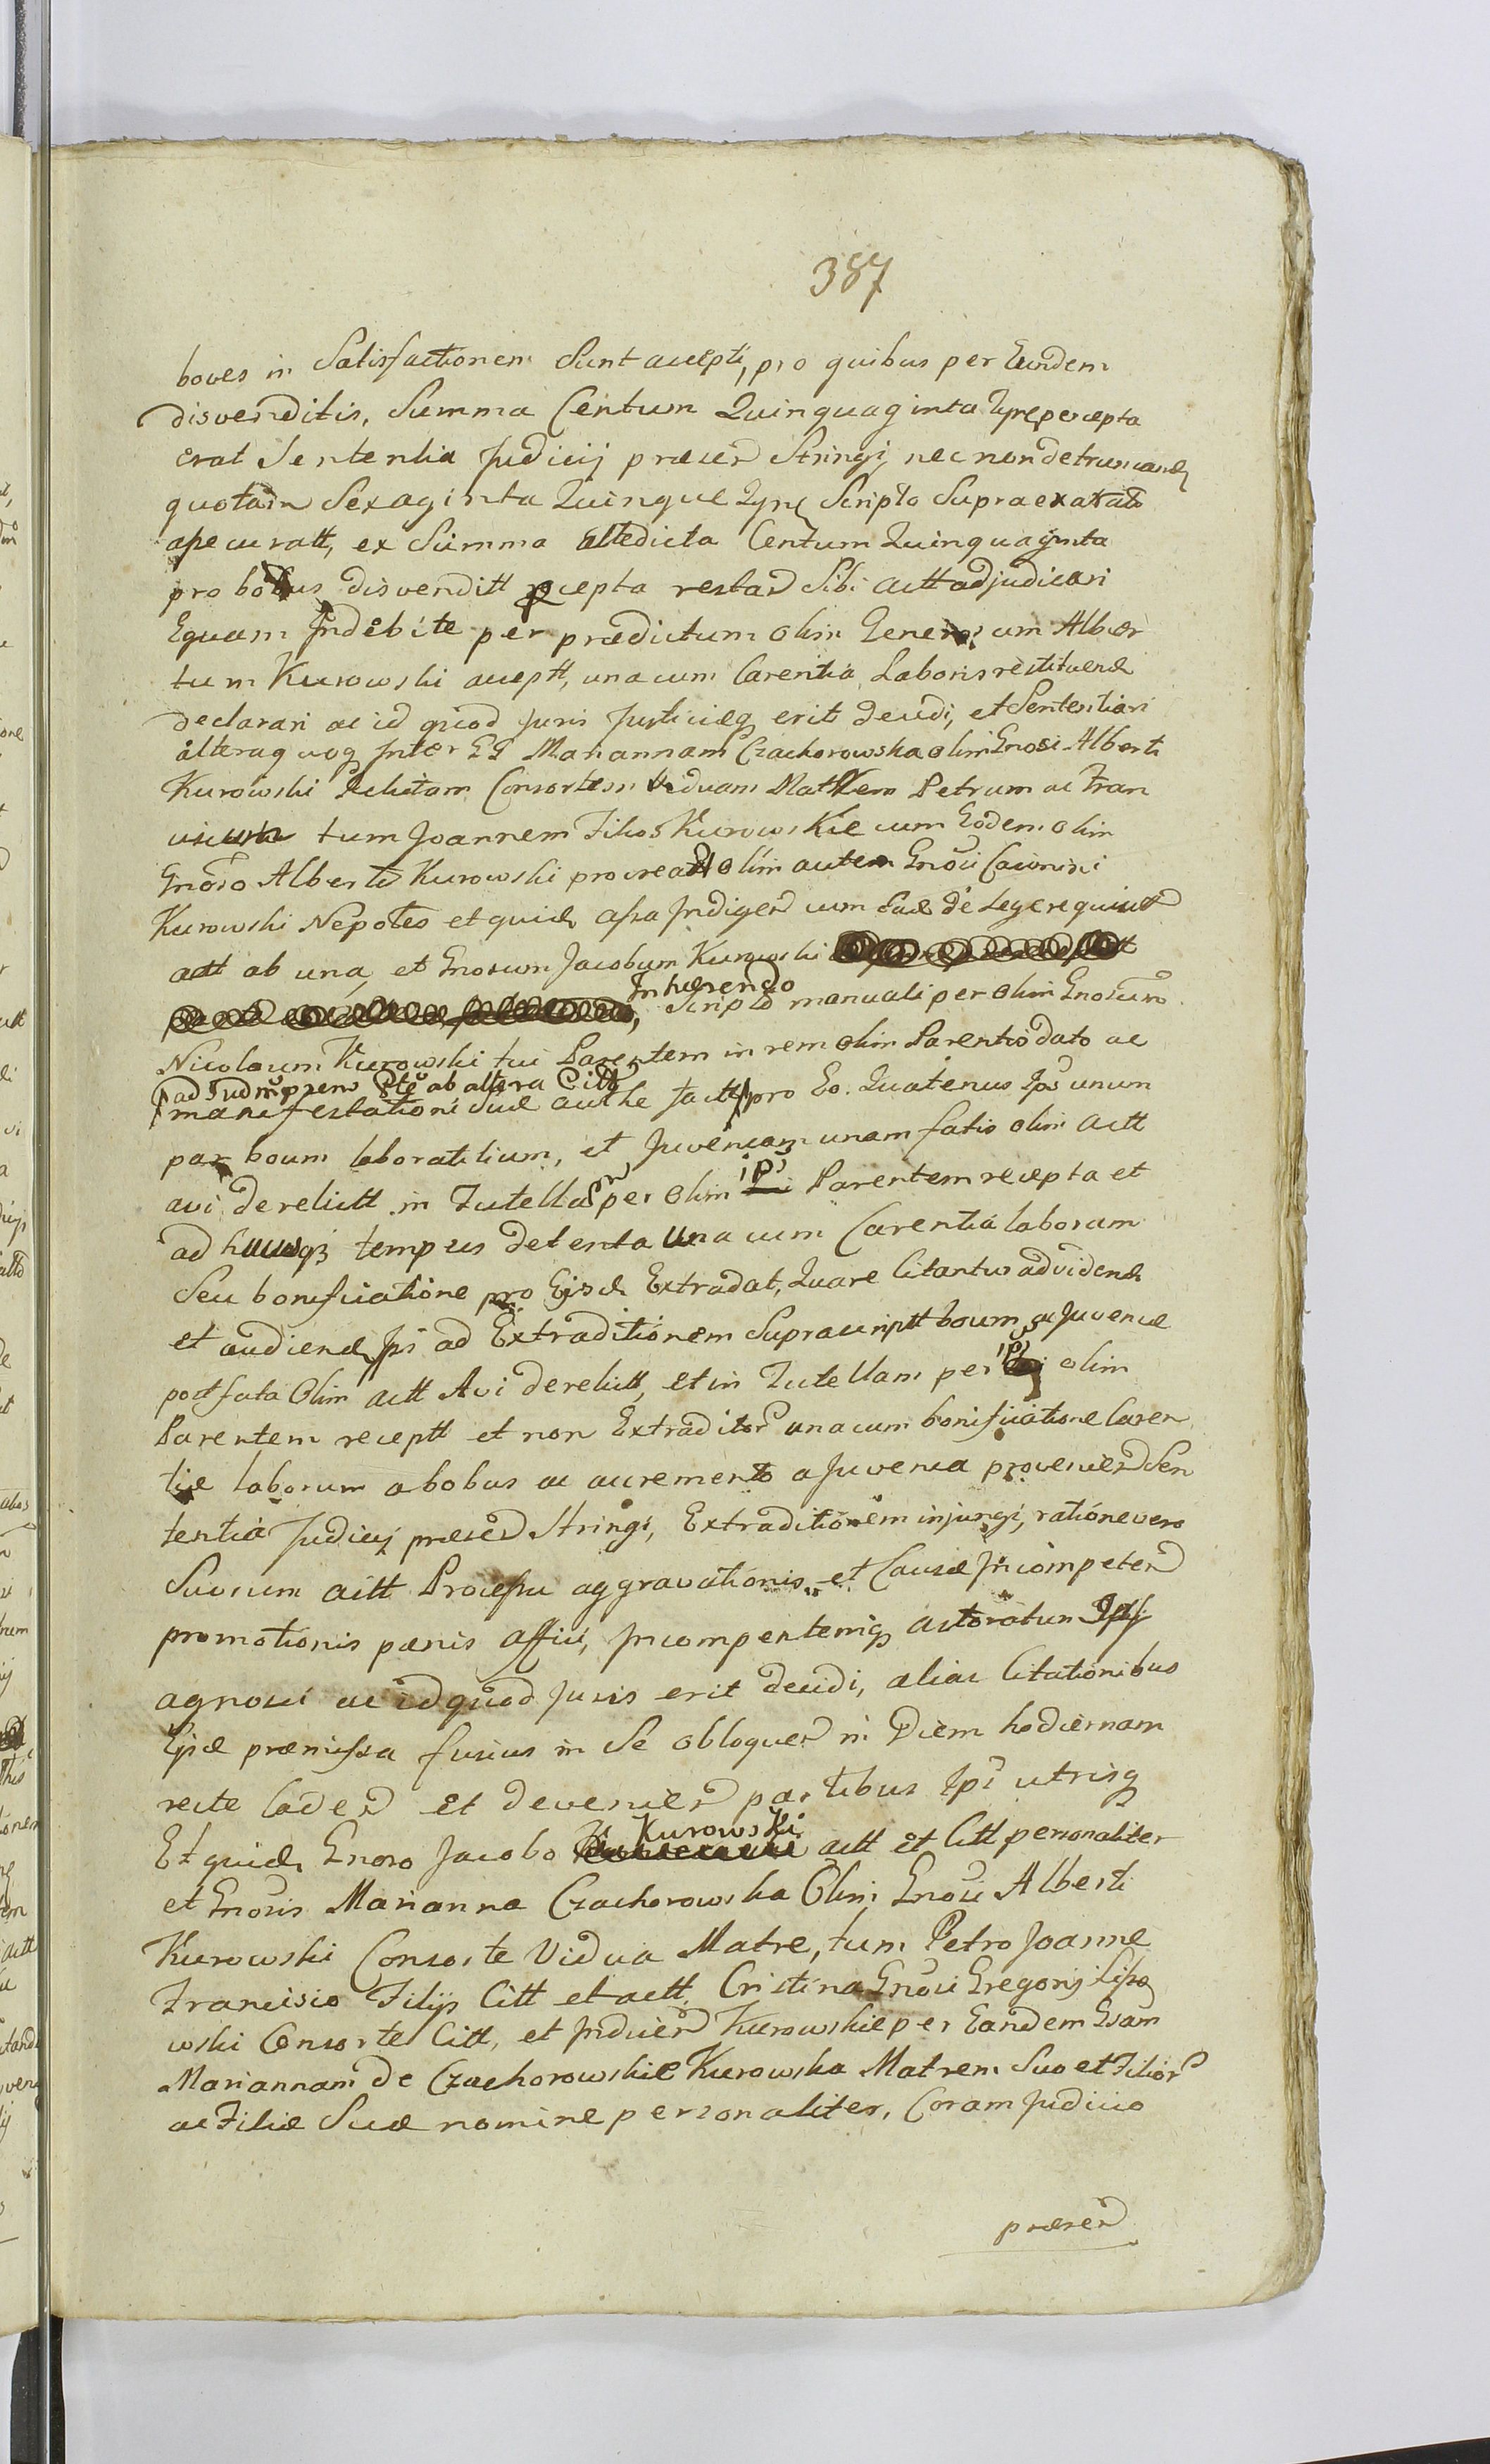 387
boves in Satisfactionem Sunt accepti, pro quibus per Eundem
disvenditis, Summa Centum Quinquaginta percepta
erat Sententia Judicij præsen Stringi, nec non detruncand
quotam Sexaginta Quinque Scripto Supra exarato
assecuratt, ex Summa attedicta Centum Quinquaginta
pro bobus disvenditt percepta restan Sibi actt adjudicari
Equam Indebite per prædictum olim Generosum Alber
tum Kurowski acceptt, unacum Carentia Laboris restituend
declarari ac id quod Juris Justiciæq erit decidi, et Sententiari
alteraq uoq Inter GG Mariannam Czachorowska olim Gnosi Alberti
Kurowski Relictam Consortem Viduam Matrem Petrum ac Fran
ciscum tum Joannem Filios Kurowskie cum Eodem olim
Gnoso Alberto Kurowski procreatt olim autem Gnosi Casimiri
Kurowski Nepotes et quid assa Indigen cum Ead de Lege requisit
actt ab una, et Gnosum Jacobum Kurowski
Inhærendo
Scripto manuali per olim Gnosum
Nicolaum Kurowski tui Parentem in rem olim Parentis dato ac
ad Judm præns Pte ab altera Citt
manifestationi Suæ authe factt pro Eo. Quatenus Ips unum
par boum laboratilium, et Juvencam unam fatis olim actt
avi derelictt in Tutellam per olim IP Parentem recepta et
ad hucusq tempus detenta una cum Carentia laborum
Seu bonificatione pro Ejsd Extradat, Quare Citantur ad vidend
et audiend Ips ad Extraditionem Suprascriptt boum ac Juvencæ
post fata Olim actt Avi derelictt, et in Tutellam per IP olim
Parentem receptt et non Extraditor unacum bonificatione Caren
tiæ laborum a bobus ac accremento a Juvenca provenien Sen
tentia Judicij præsen Stringi, Extraditionem injungi, ratione vero
Suorum actt Processu aggravationis et Causæ Incompeten
promotionis pænis affici, Incompententemq actoratum Ips
agnosci ac id quod Juris erit decidi, alias Citationibus
Ejsd præmissa fusius in Se obloquen in Diem hodiernam
recte Caden et devenien partibus Ips utrisq
Et quid Gnoso Jacobo Kurowski actt et Citt personaliter
et Gnosis Marianna Czachorowska Olim Gnosi Alberti
Kurowski Consorte Vidua Matre, tum Petro Joanne
Francisco Filijs Citt et actt, Cristina Gnosi Gregorij Lisso
wski Consorte Citt, et Induien Kurowskie per Eandem Gsam
Mariannam de Czachorowskie Kurowska Matrem Suo et Filior
ac Filiæ Suæ nomine personaliter, Coram Judicio
præsen